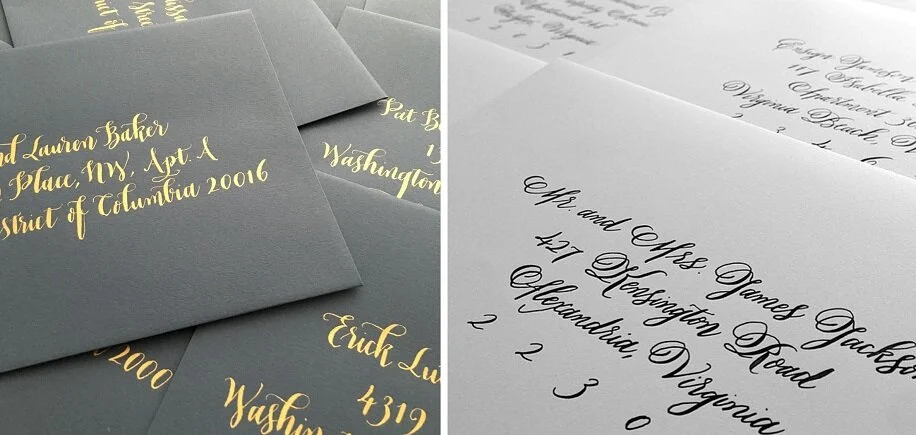 Stree
ct of
nd Lauren Baker
Place, NW, Apt. A
strict of Columbia 20016
Pat B
Washington
2000
Erick Lu
4319
Washin
Virginia
117 Isabella
Apartment
Virginia Beach,
Mr. and Mrs. James Jackson
427 Kensington Road
Alexandria, Virginia
2 2 3 0